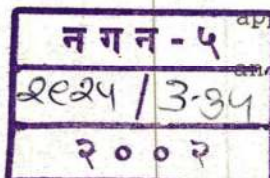 न ग न - ५
२९२५ / ३-३५
२ ० ० २